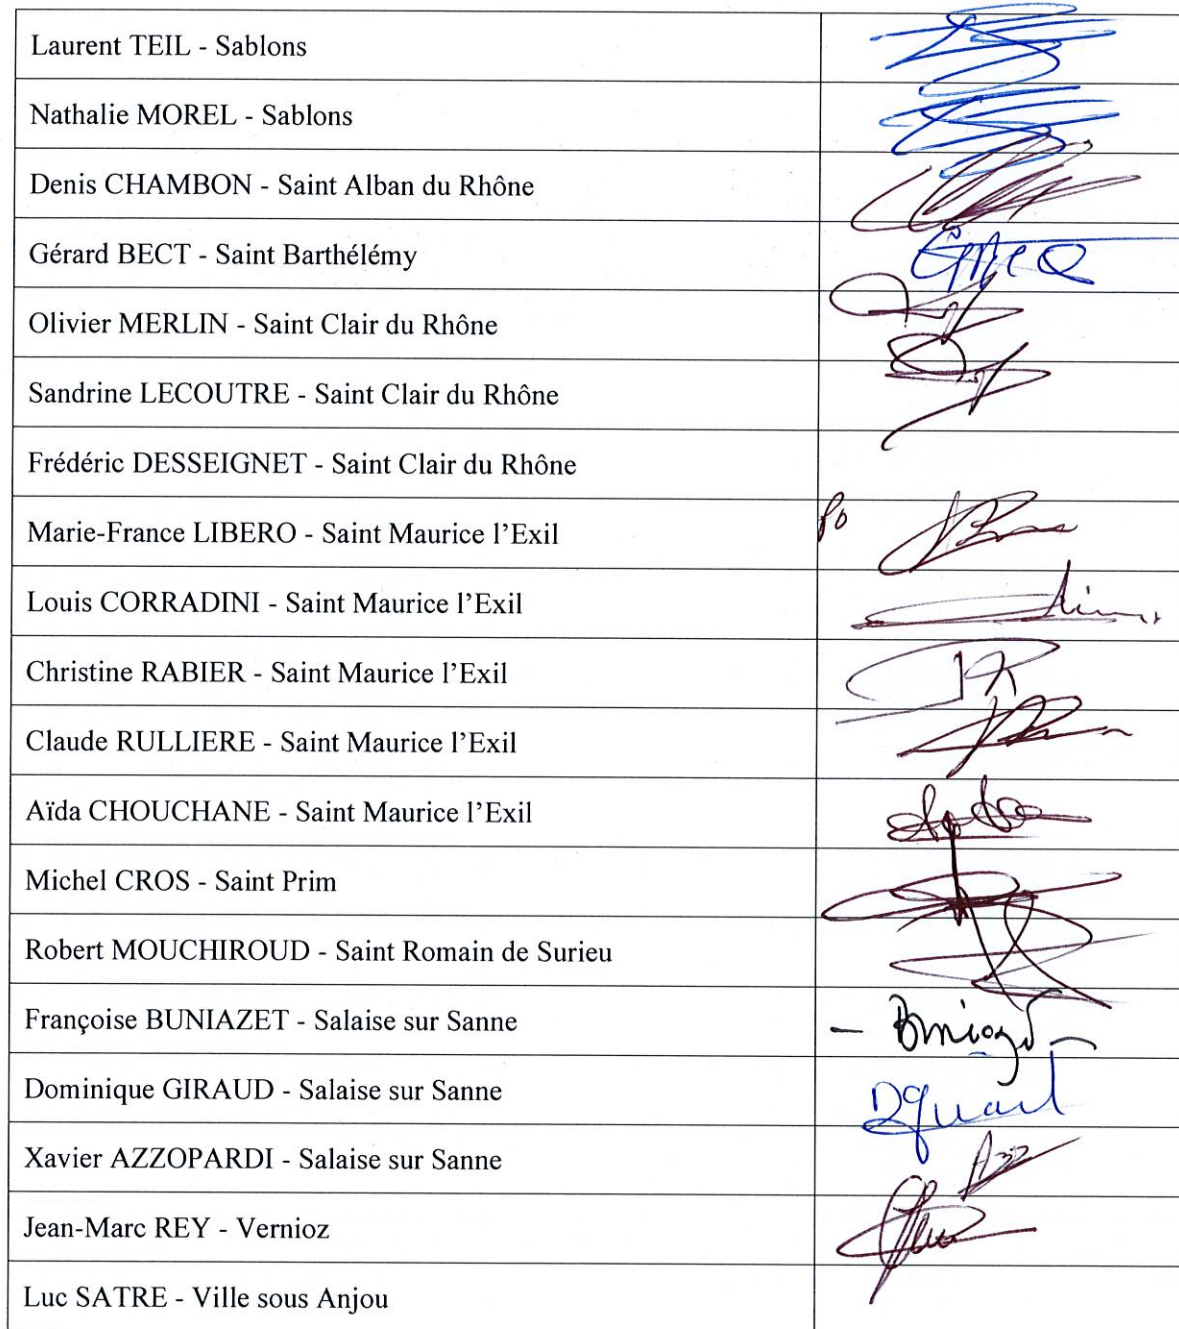 Laurent TEIL - Sablons
Nathalie MOREL - Sablons
Denis CHAMBON - Saint Alban du Rhône
Gérard BECT - Saint Barthélémy
Olivier MERLIN - Saint Clair du Rhône
Sandrine LECOUTRE - Saint Clair du Rhône
Frédéric DESSEIGNET - Saint Clair du Rhône
Marie-France LIBERO - Saint Maurice l'Exil
Louis CORRADINI - Saint Maurice l'Exil
Christine RABIER - Saint Maurice l'Exil
Claude RULLIERE - Saint Maurice l'Exil
Aïda CHOUCHANE - Saint Maurice l'Exil
Michel CROS - Saint Prim
Robert MOUCHIROUD - Saint Romain de Surieu
Françoise BUNIAZET - Salaise sur Sanne
Dominique GIRAUD - Salaise sur Sanne
Xavier AZZOPARDI - Salaise sur Sanne
Jean-Marc REY - Vernioz
Luc SATRE - Ville sous Anjou